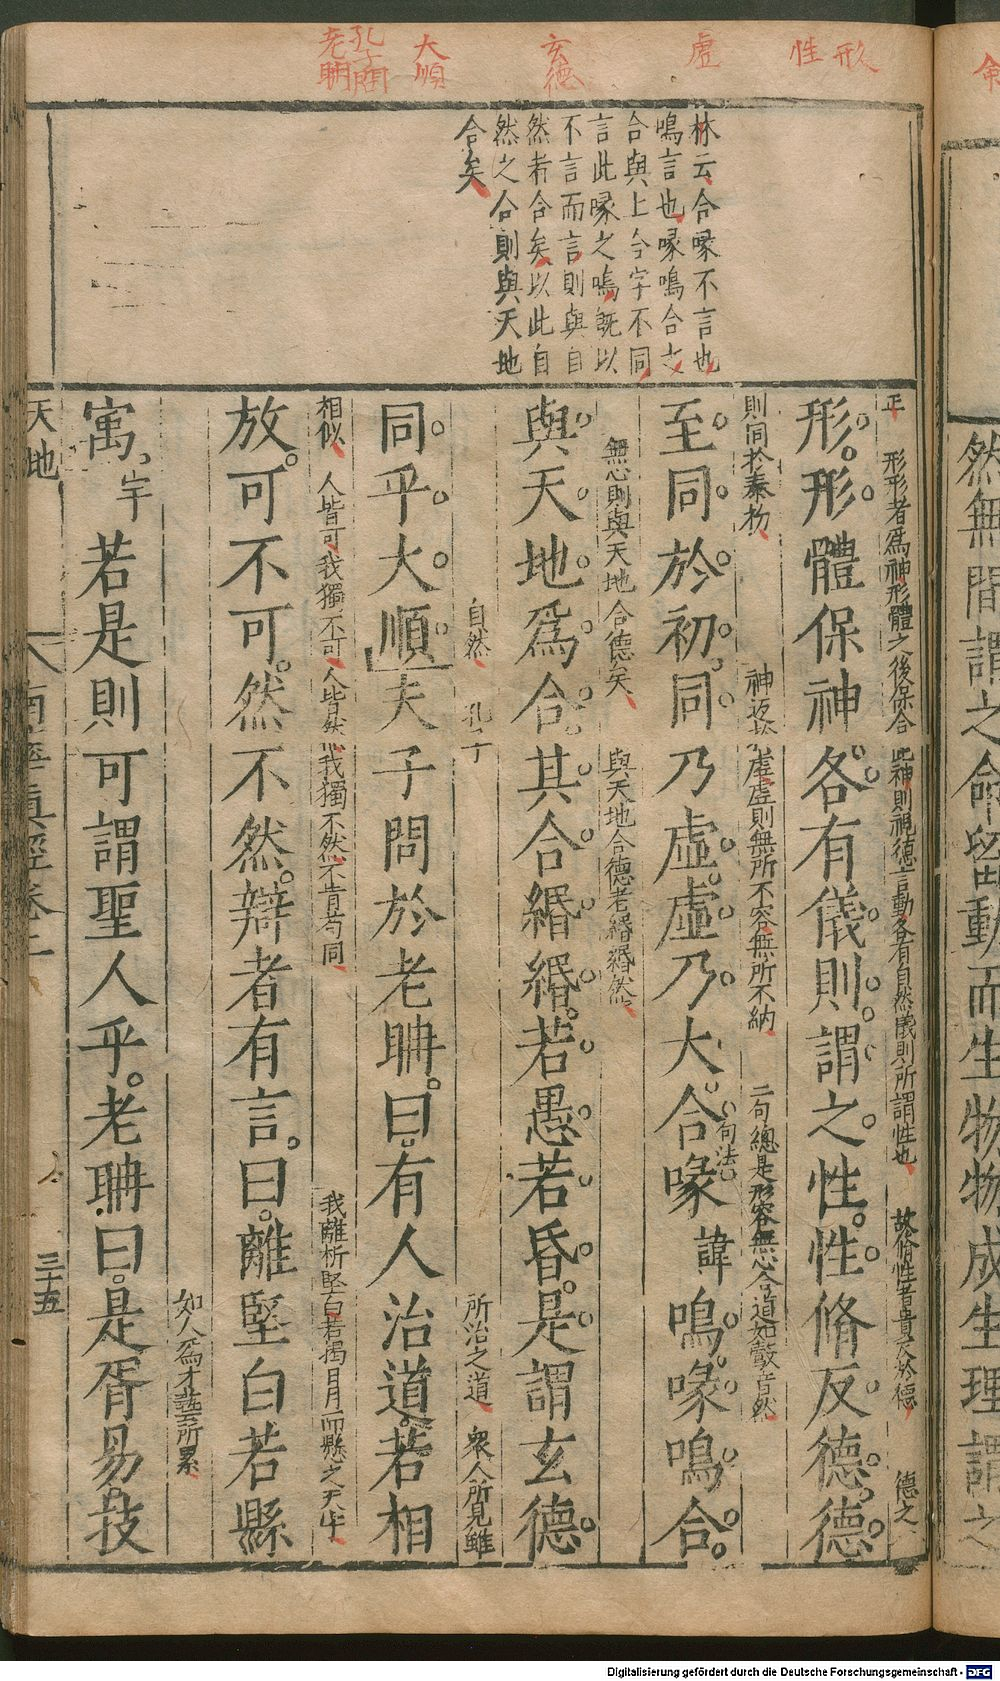 形性
虛
玄德
大順
孔子問
老聃
林云合喙不言也
鳴言也喙鳴合
合與上合字不同
言此喙之鳴既以
不言而言則與自
然者合矣以此自
然之合則與天地
合矣
正 形形者爲神形體之後保合 此神則視聽言動各有自然儀則所謂性也 故脩性者貴反於德 德之
形形體保神各有儀則謂之性性脩反德德
則同於泰初 神返於虛虛則無所不容無所不納 二句總是形容無心合道如鷇音然
至同於初同乃虛虛乃大合喙 句法 諱 鳴喙鳴合
無心則與天地合德矣 與天地合德者緡緡然
與天地爲合其合緡緡若愚若昏是謂玄德
自然 孔子 所治之道 衆人所見雖
同乎大順夫子問於老聃曰有人治道若相
相似 人皆可我獨不可人皆然我獨不然不肯苟同 我離析堅白若揭日月而懸之天宇
放可不可然不然辯者有言曰離堅白若縣
如人爲才藝所累
寓 宇 若是則可謂聖人乎老聃曰是胥易技
天地 南華真經卷二 三十五
然無間謂之命留動而生物物成生理謂之
命
Digitalisierung gefördert durch die Deutsche Forschungsgemeinschaft - DFG